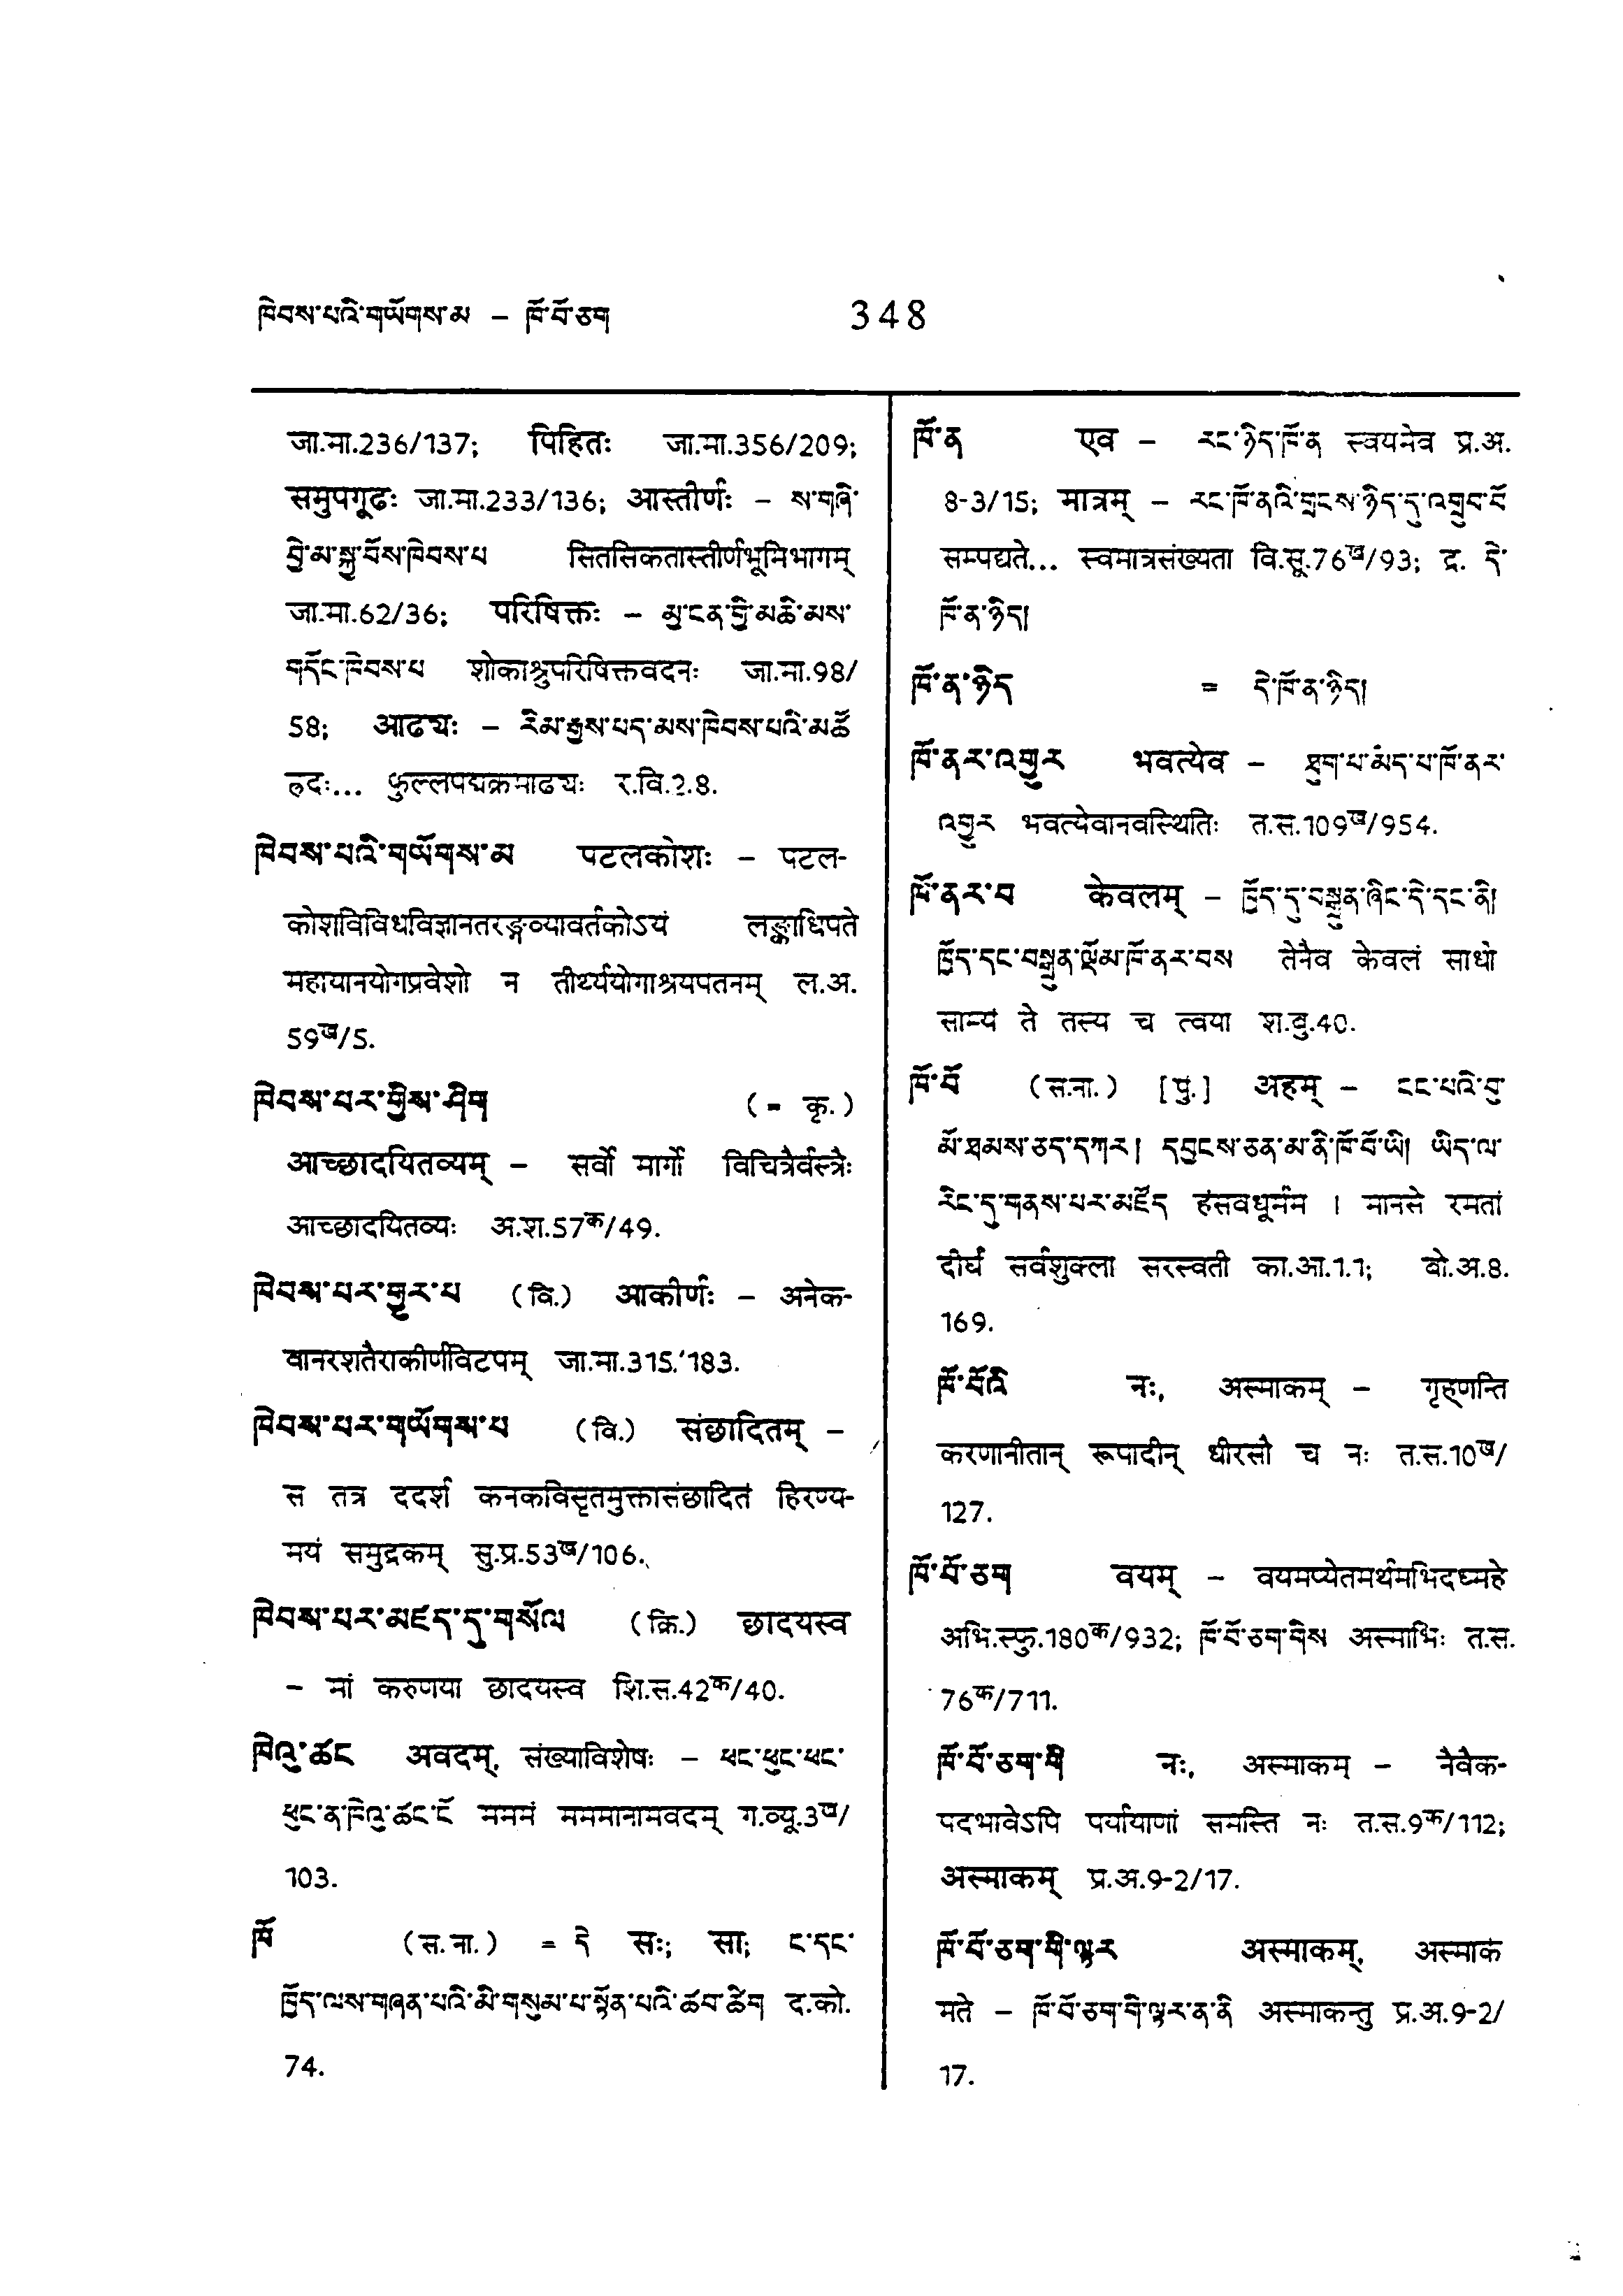 ཁེབས་པའི་གཡོགས་མ – ཁོ་བོ་ཅག 348
जा.मा.236/137; पिहितः जा.मा.356/209;
समुपगूढः जा.मा.233/136; आस्तीर्णः – ས་གཞི་
བྱེ་མ་སྐྱ་བོས་ཁེབས་པ सितसिकतास्तीर्णभूमिभागम्
जा.मा.62/36; परिषिक्तः – མྱ་ངན་གྱི་མཆི་མས་
གདོང་ཁེབས་པ शोकाश्रुपरिषिक्तवदनः जा.मा.98/
58; आढ्यः – རིམ་རྒྱས་པད་མས་ཁེབས་པའི་མཚོ
ह्रदः... फुल्लपद्मक्रमाढ्यः र.वि.2.8.
ཁེབས་པའི་གཡོགས་མ पटलकोशः – पटल-
कोशविविधविज्ञानतरङ्गव्यावर्तकोऽयं लङ्काधिपते
महायानयोगप्रवेशो न तीर्थ्ययोगाश्रयपतनम् ल.अ.
59ख/5.
ཁེབས་པར་གྱིས་ཤིག (= कृ.)
आच्छादयितव्यम् – सर्वो मार्गो विचित्रैर्वस्त्रैः
आच्छादयितव्यः अ.श.57क/49.
ཁེབས་པར་གྱུར་པ (वि.) आकीर्णः – अनेक-
वानरशतैराकीर्णविटपम् जा.मा.315/183.
ཁེབས་པར་གཡོགས་པ (वि.) संछादितम् –
स तत्र ददर्श कनकविसृतमुक्तासंछादितं हिरण्य-
मयं समुद्गकम् सु.प्र.53ख/106.
ཁེབས་པར་མཛད་དུ་གསོལ (क्रि.) छादयस्व
– मां करुणया छादयस्व शि.स.42क/40.
ཁེའུ་ཚང अवदम्, संख्याविशेषः – ཕང་ཕུང་ཕང་
ཕུང་ན་ཁེའུ་ཚང་ངོ मममं मममानामवदम् ग.व्यू.3ख/
103.
ཁོ (स.ना.) = དེ सः; सा; ང་དང་
ཁྱོད་ལས་གཞན་པའི་མི་གསུམ་པ་སྟོན་པའི་ཚབ་ཚིག द.को.
74.
ཁོ་ན एव – རང་ཉིད་ཁོ་ན स्वयमेव प्र.अ.
8-3/15; मात्रम् – རང་ཁོ་ནའི་གྲངས་ཉིད་དུ་འགྲུབ་བོ
सम्पद्यते... स्वमात्रसंख्यता वि.सू.76ख/93; द्र. དེ་
ཁོ་ན་ཉིད།
ཁོ་ན་ཉིད = དེ་ཁོ་ན་ཉིད།
ཁོ་ནར་འགྱུར भवत्येव – ཐུག་པ་མེད་པ་ཁོ་ནར་
འགྱུར भवत्येवानवस्थितिः त.स.109ख/954.
ཁོ་ནར་བ केवलम् – ཁྱོད་དུ་བསྟུན་ཞིང་དེ་དང་ནི།
ཁྱོད་དང་བསྟུན་ལྡོམ་ཁོ་ནར་བས तेनैव केवलं साधो
साम्यं ते तस्य च त्वया श.बु.40.
ཁོ་བོ (स.ना.) [पुं.] अहम् – ངང་པའི་བུ་
མོ་ཐམས་ཅད་དཀར། དབྱངས་ཅན་མ་ནི་ཁོ་བོ་ཡི། ཡིད་ལ་
རིང་དུ་གནས་པར་མཛོད हंसवधूर्मम । मानसे रमतां
दीर्घं सर्वशुक्ला सरस्वती का.आ.1.1; बो.अ.8.
169.
ཁོ་བོའི नः, अस्माकम् – गृह्णन्ति
करणानीतान् रूपादीन् धीरसौ च नः त.स.10ख/
127.
ཁོ་བོ་ཅག वयम् – वयमप्येतमर्थमभिदध्महे
अभि.स्फु.180क/932; ཁོ་བོ་ཅག་གིས अस्माभिः त.स.
76क/711.
ཁོ་བོ་ཅག་གི नः, अस्माकम् – नैवैक-
पदभावेऽपि पर्यायाणां समस्ति नः त.स.9क/112;
अस्माकम् प्र.अ.9-2/17.
ཁོ་བོ་ཅག་གི་ལྟར अस्माकम्, अस्माकं
मते – ཁོ་བོ་ཅག་གི་ལྟར་ན་ནི अस्माकन्तु प्र.अ.9-2/
17.